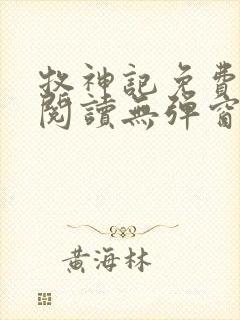 牧神記免費
閱讀無彈窗
黃海林